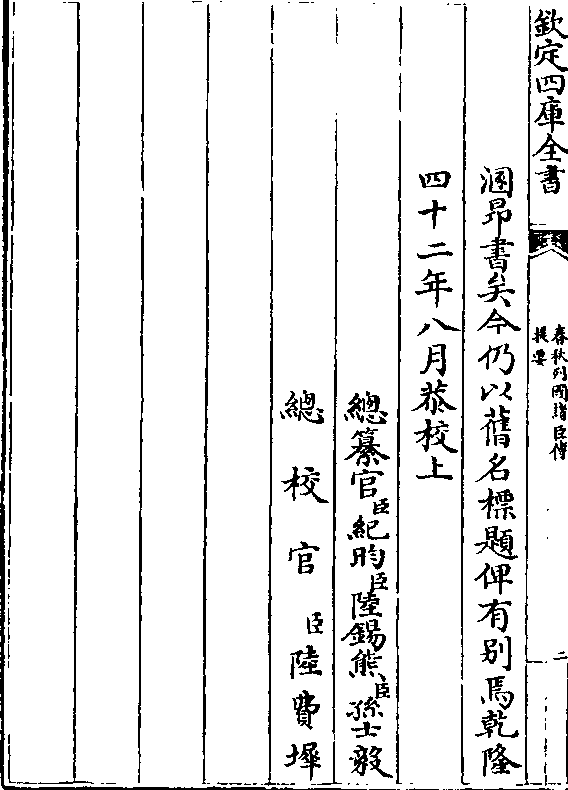 欽定四庫全書
春秋列國諸臣傳
提要
二
溷昻書矣今仍以舊名標題俾有别焉乾隆
四十二年八月恭校上
總纂官臣紀昀臣陸錫熊臣孫士毅
總校官臣陸費墀